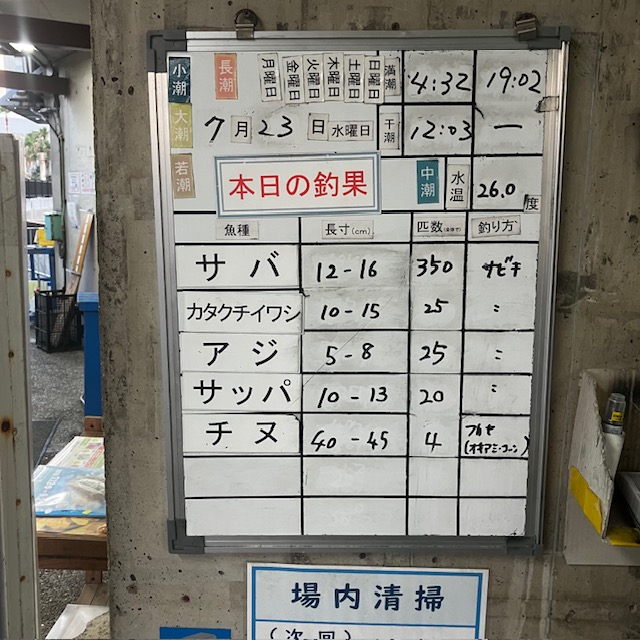 小潮 長潮 月曜日 火曜日 金曜日 水曜日 木曜日 土曜日 日曜日 満潮 4:32 19:02
大潮 7月23日 水曜日 干潮 12:03 ー
若潮 本日の釣果 中潮 水温 26.0度
魚種 長寸(cm) 匹数 釣り方
サバ 12-16 350 サビキ
カタクチイワシ 10-15 25 〃
アジ 5-8 25 〃
サッパ 10-13 20 〃
チヌ 40-45 4 フカセ
(オキアミ・コーン)
場内清掃
(次回)